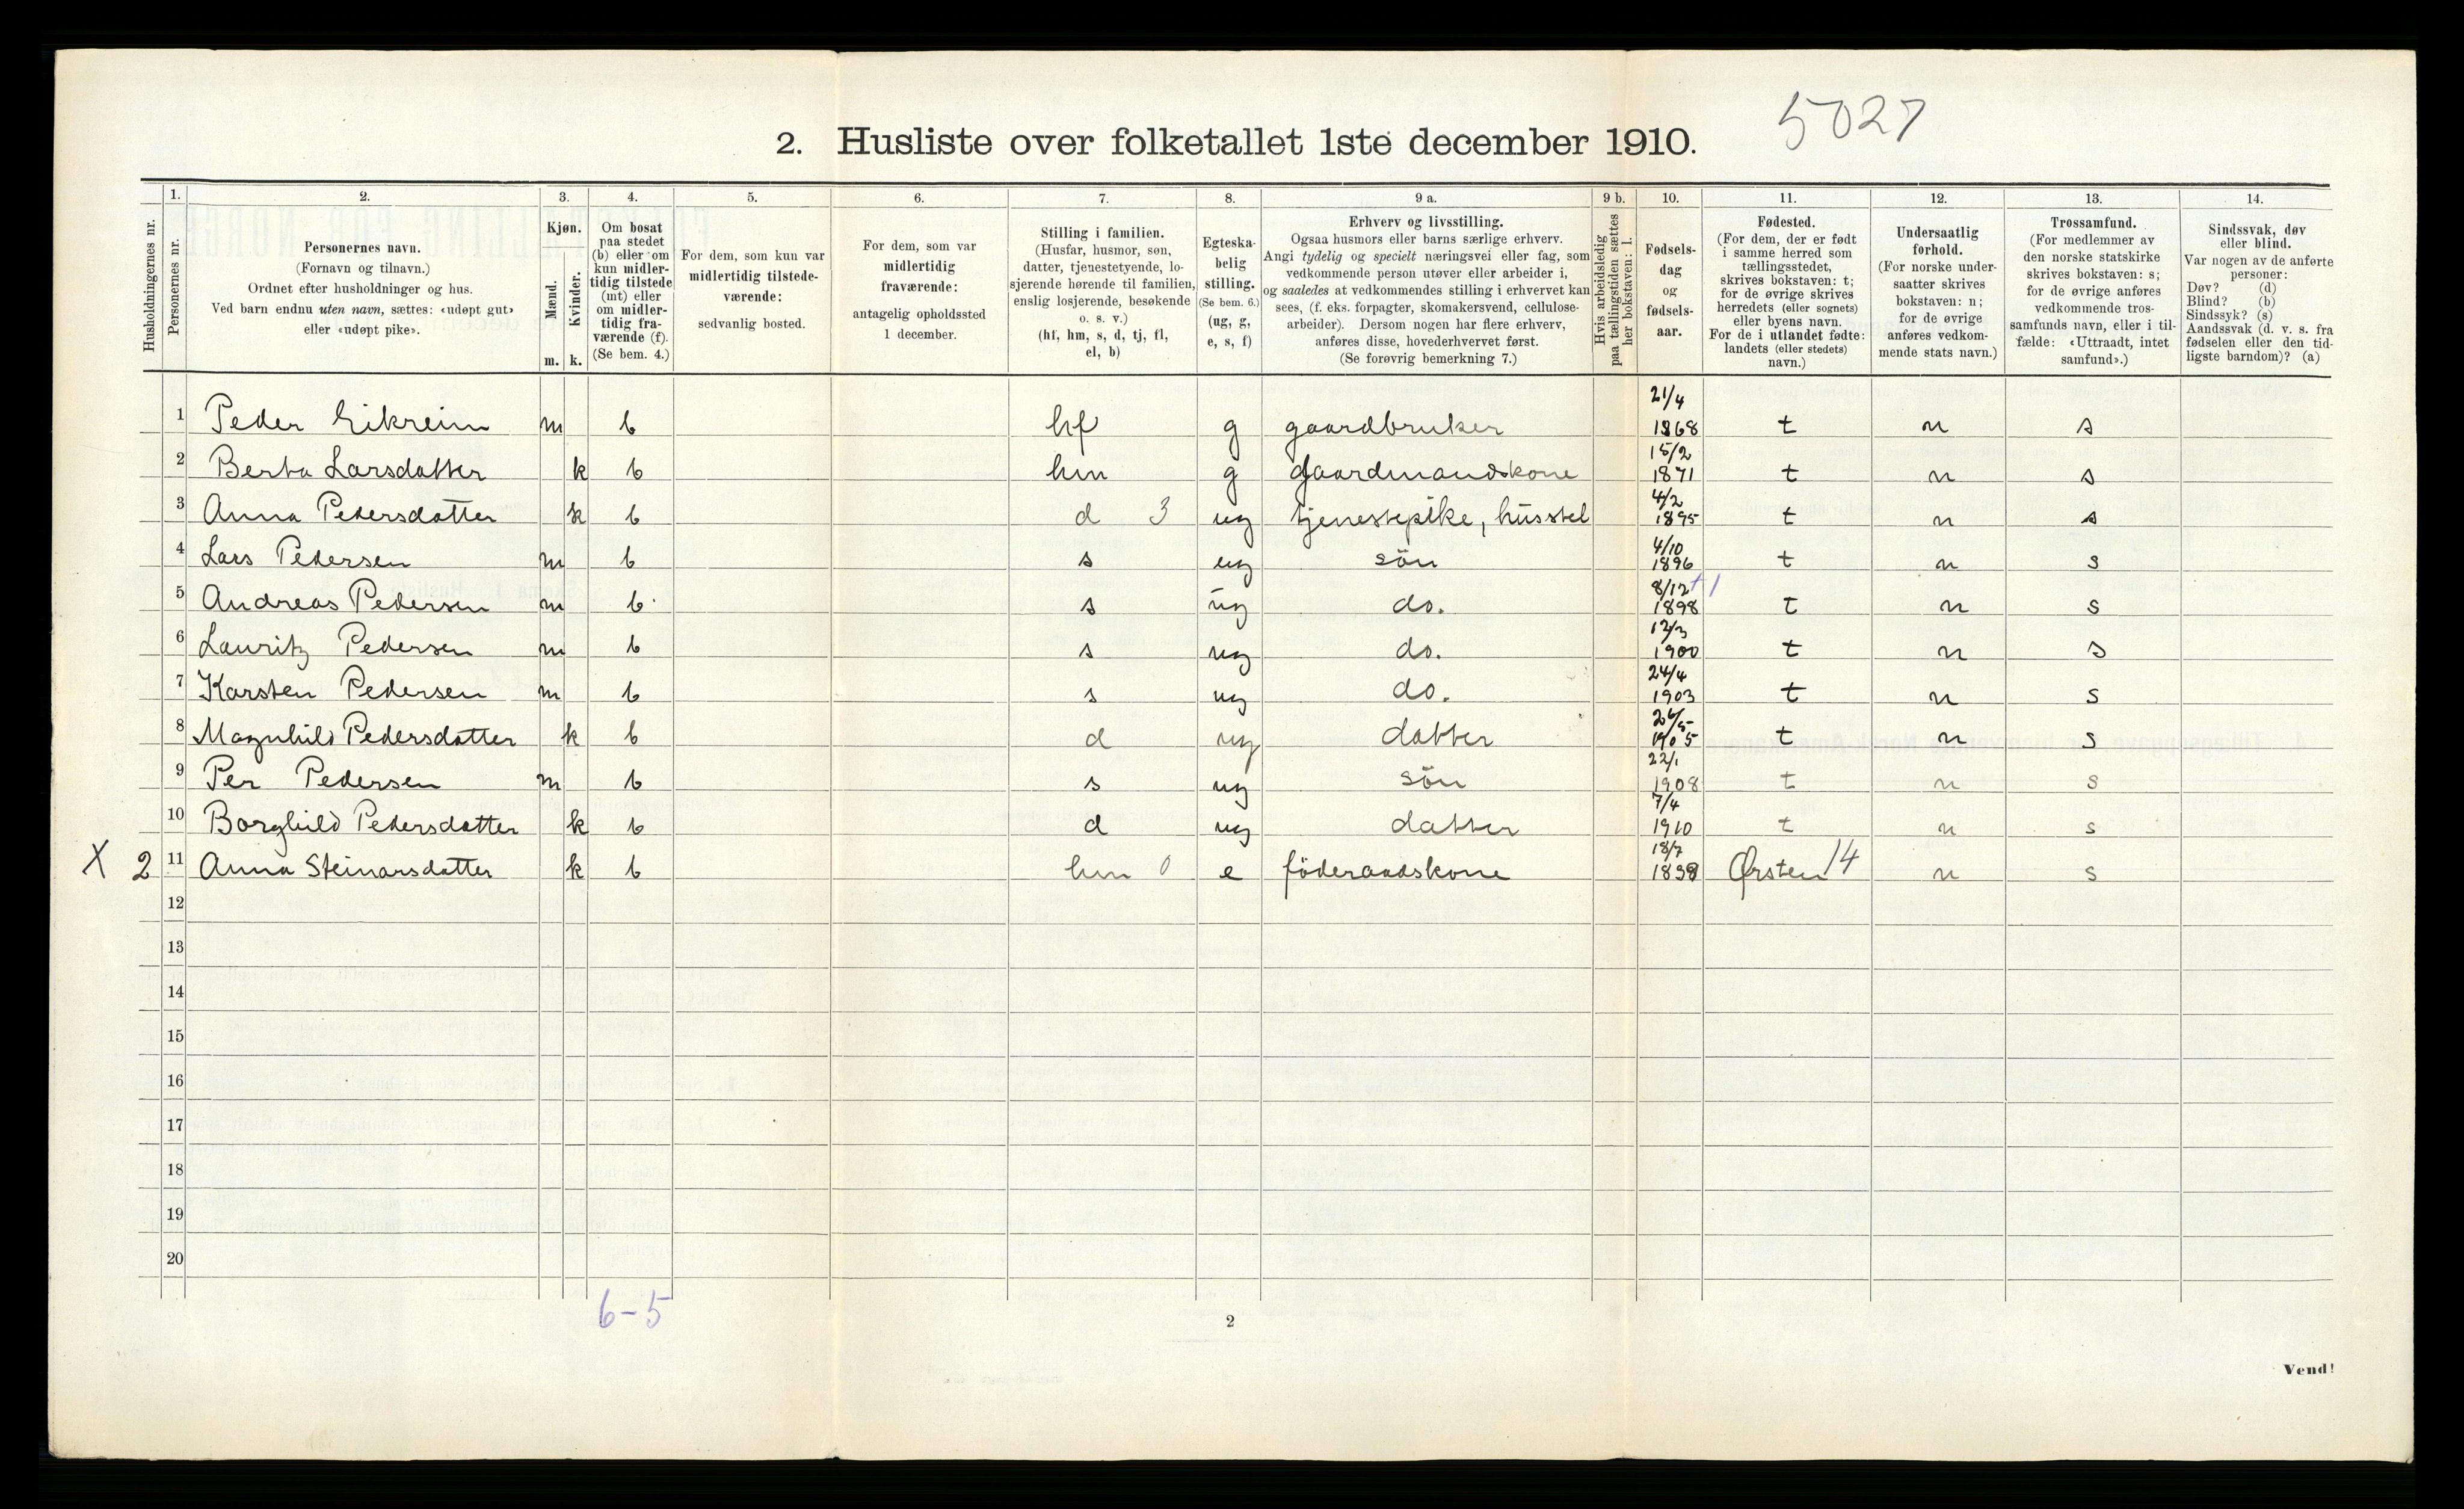 5027
2. Husliste over folketallet 1ste december 1910.
Husholdningernes nr.
1.
Personernes nr.
2.
Personernes navn.
(Fornavn og tilnavn.)
Ordnet efter husholdninger og hus.
Ved barn endnu uten navn, sættes: «udøpt gut»
eller «udøpt pike».
3.
Kjøn.
Mænd.
m.
Kvinder.
k.
4.
Om bosat
paa stedet
(b) eller om
kun midler-
tidig tilstede
(mt) eller
om midler-
tidig fra-
værende (f).
(Se bem. 4.)
5.
For dem, som kun var
midlertidig tilstede-
værende:
sedvanlig bosted.
6.
For dem, som var
midlertidig
fraværende:
antagelig opholdssted
1 december.
7.
Stilling i familien.
(Husfar, husmor, søn,
datter, tjenestetyende, lo-
sjerende hørende til familien,
enslig losjerende, besøkende
o. s. v.)
(hf, hm, s, d, tj, fl,
el, b)
8.
Egteska-
belig
stilling.
(Se bem. 6.)
(ug, g,
e, s, f)
9 a.
Erhverv og livsstilling.
Ogsaa husmors eller barns særlige erhverv.
Angi tydelig og specielt næringsvei eller fag, som
vedkommende person utøver eller arbeider i,
og saaledes at vedkommendes stilling i erhvervet kan
sees, (f. eks. forpagter, skomakersvend, cellulose-
arbeider). Dersom nogen har flere erhverv,
anføres disse, hovederhvervet først.
(Se forøvrig bemerkning 7.)
9 b.
Hvis arbeidsledig
paa tællingstiden sættes
her bokstaven: l.
10.
Fødsels-
dag
og
fødsels-
aar.
11.
Fødested.
(For dem, der er født
i samme herred som
tællingsstedet,
skrives bokstaven: t;
for de øvrige skrives
herredets (eller sognets)
eller byens navn.
For de i utlandet fødte:
landets (eller stedets)
navn.)
12.
Undersaatlig
forhold.
(For norske under-
saatter skrives
bokstaven: n;
for de øvrige
anføres vedkom-
mende stats navn.)
13.
Trossamfund.
(For medlemmer av
den norske statskirke
skrives bokstaven: s;
for de øvrige anføres
vedkommende tros-
samfunds navn, eller i til-
fælde: «Uttraadt, intet
samfund».)
14.
Sindssvak, døv
eller blind.
Var nogen av de anførte
personer:
Døv? (d)
Blind? (b)
Sindssyk? (s)
Aandssvak (d. v. s. fra
fødselen eller den tid-
ligste barndom)? (a)
1 Peder Eikreim m b hf g gaardbruker 21/4 1868 t n s
2 Berta Larsdatter k b hm g Gaardmandskone 15/2 1871 t n s
3 Anna Pedersdatter k b d 3 ug tjenestepike, husstel 4/2 1895 t n s
4 Lars Pedersen m b s ug sön 4/10 1896 t n s
5 Andreas Pedersen m b s ug do. 8/12 1898 t n s
6 Lauritz Pedersen m b s ug do. 12/3 1900 t n s
7 Karsten Pedersen m b s ug do. 24/4 1903 t n s
8 Magnhild Pedersdatter k b d ug datter 26/5 1905 t n s
9 Per Pedersen m b s ug sön 22/1 1908 t n s
10 Borghild Pedersdatter k b d ug datter 7/4 1910 t n s
X 2 11 Anna Steinarsdatter k b hm 0 e föderaadskone 18/7 Ørsten 14 n s
12
13
14
15
16
17
18
19
20
6-5
2
Vend!